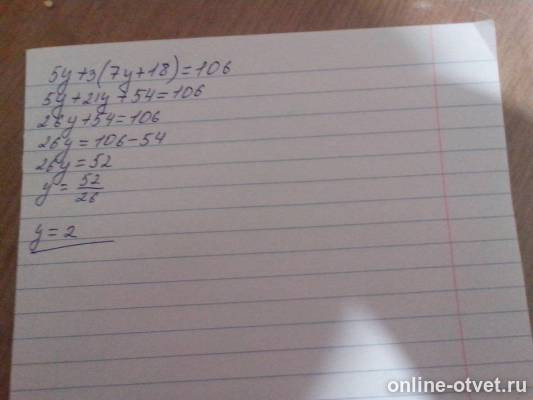 5y+3(7y+18)=106
5y+21y+54=106
26y+54=106
26y=106-54
26y=52
y=52/26
y=2
online-otvet.ru